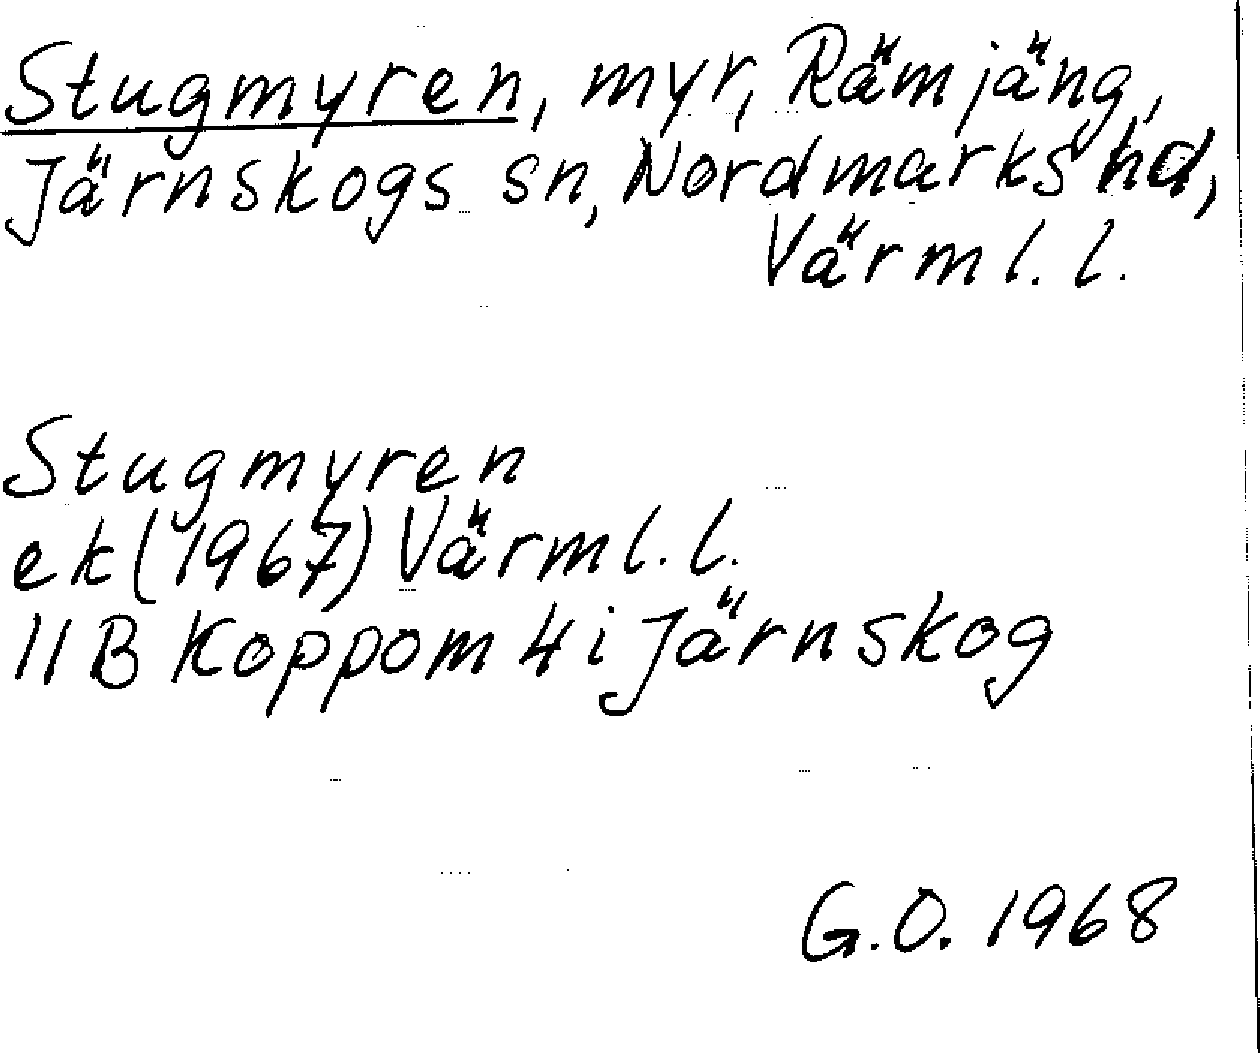 Stugmyren, myr, Rämjäng,
Järnskogs sn, Nordmarks hd,
Värml. l.
Stugmyren
ek (1967) Värml. l.
11B Koppom 4 i Järnskog
G.O. 1968